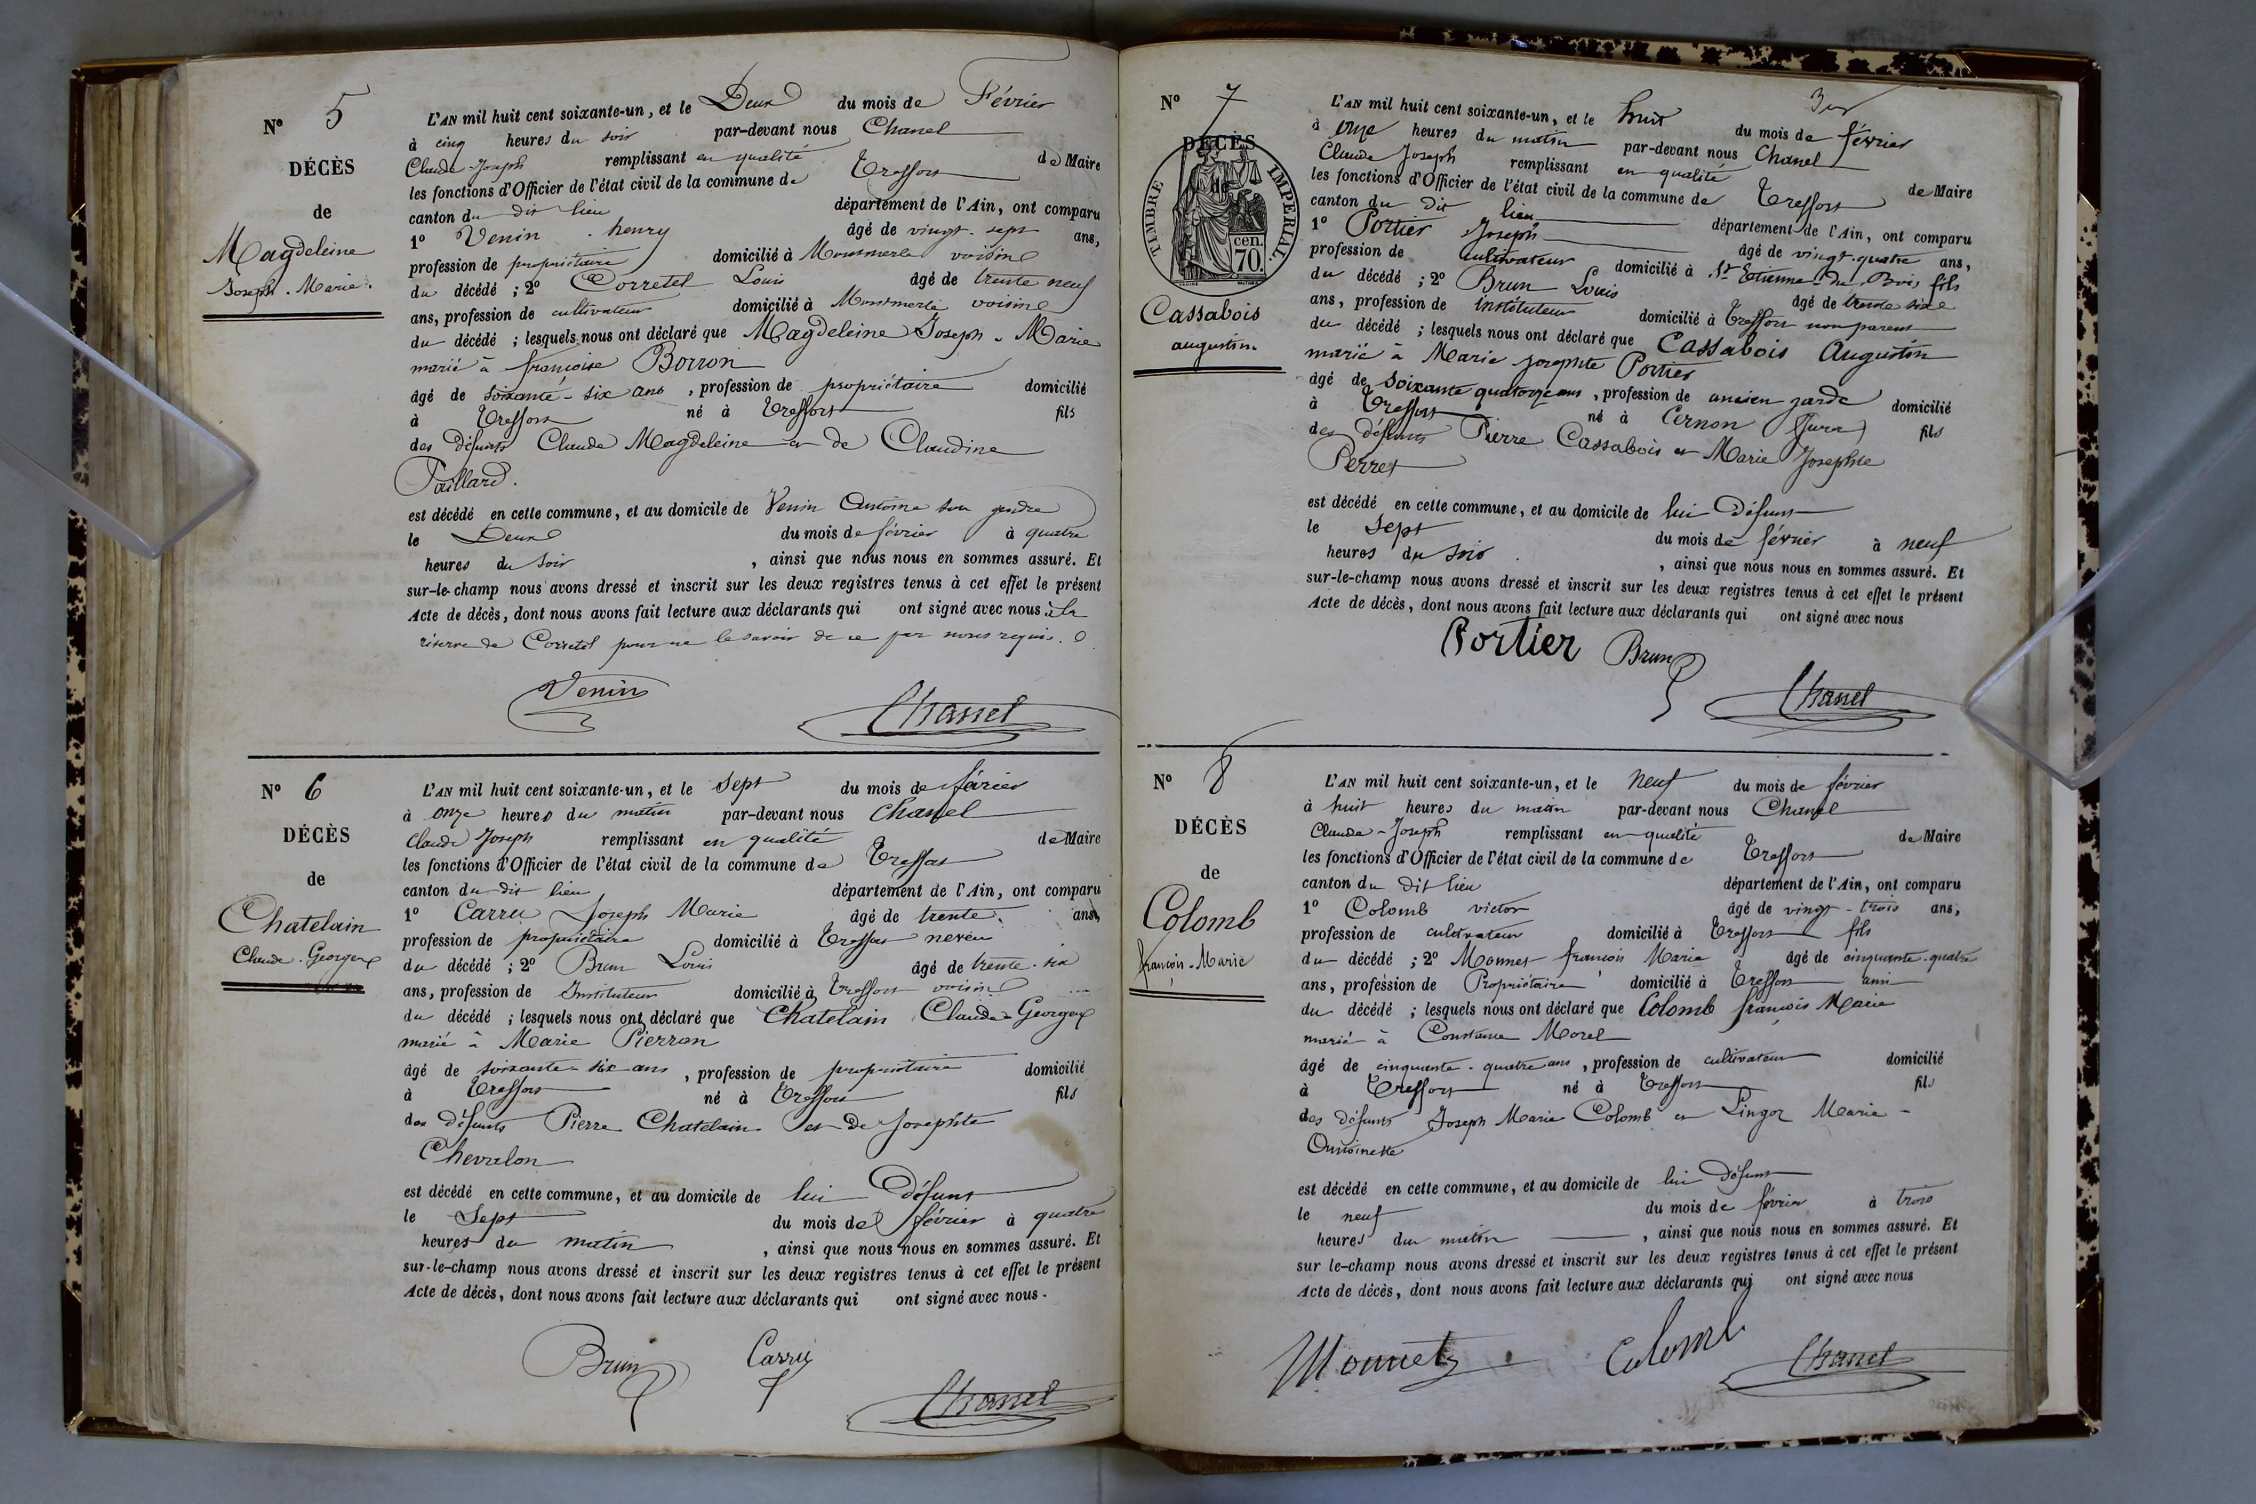 N° 5
DÉCÈS
de
Magdeleine
Joseph-Marie.
L'AN mil huit cent soixante-un, et le Deux du mois de Février
à cinq heures du soir par-devant nous Chanel
Claude-Joseph remplissant en qualité de Maire
les fonctions d'Officier de l'état civil de la commune de Treffort
canton du dit lieu département de l'Ain, ont comparu
1° Venin henry âgé de vingt-sept ans,
profession de propriétaire domicilié à Montmerle voisin
du décédé ; 2° Corretel Louis âgé de trente neuf
ans, profession de cultivateur domicilié à Montmerle voisin
du décédé ; lesquels nous ont déclaré que Magdeleine Joseph-Marie
marié à françoise Borron
âgé de soixante-six ans, profession de propriétaire domicilié
à Treffort né à Treffort fils
des défunts Claude Magdeleine et de Claudine
Paillard.
est décédé en cette commune, et au domicile de Venin Antoine son gendre
le Deux du mois de février à quatre
heures du soir, ainsi que nous nous en sommes assuré. Et
sur-le-champ nous avons dressé et inscrit sur les deux registres tenus à cet effet le présent
Acte de décès, dont nous avons fait lecture aux déclarants qui ont signé avec nous à la
réserve de Corretel pour ne le savoir de ce par nous requis.
Venin
Chanel
N° 6
DÉCÈS
de
Chatelain
Claude-Georges
L'AN mil huit cent soixante-un, et le sept du mois de février
à onze heures du matin par-devant nous Chanel
Claude Joseph remplissant en qualité de Maire
les fonctions d'Officier de l'état civil de la commune de Treffort
canton du dit lieu département de l'Ain, ont comparu
1° Carru Joseph Marie âgé de trente ans,
profession de propriétaire domicilié à Treffort neveu
du décédé ; 2° Brun Louis âgé de trente-six
ans, profession de Instituteur domicilié à Treffort voisin
du décédé ; lesquels nous ont déclaré que Chatelain Claude-Georges
marié à Marie Pierron
âgé de soixante-six ans, profession de propriétaire domicilié
à Treffort né à Treffort fils
des défunts Pierre Chatelain et de Josephte
Chevalon
est décédé en cette commune, et au domicile de lui Défunt
le Sept du mois de février à quatre
heures du matin, ainsi que nous nous en sommes assuré. Et
sur-le-champ nous avons dressé et inscrit sur les deux registres tenus à cet effet le présent
Acte de décès, dont nous avons fait lecture aux déclarants qui ont signé avec nous.
Brun Carru
Chanel
N° 7
DÉCÈS
de
TIMBRE IMPÉRIAL.
cen.
70.
Cassabois
augustin
L'AN mil huit cent soixante-un, et le huit du mois de février
à onze heures du matin par-devant nous Chanel
Claude Joseph remplissant en qualité de Maire
les fonctions d'Officier de l'état civil de la commune de Treffort
canton du dit lieu département de l'Ain, ont comparu
1° Portier Joseph âgé de vingt-quatre ans,
profession de cultivateur domicilié à St Etienne-du-Bois fils
du décédé ; 2° Brun Louis âgé de trente six
ans, profession de Instituteur domicilié à Treffort non parent
du décédé ; lesquels nous ont déclaré que Cassabois Augustin
marié à Marie Josephte Portier
âgé de soixante quatorze ans, profession de ancien garde domicilié
à Treffort né à Cernon (Jura) fils
des défunts Pierre Cassabois et Marie Josephte
Perret
est décédé en cette commune, et au domicile de lui Défunt
le sept du mois de février à neuf
heures du soir, ainsi que nous nous en sommes assuré. Et
sur-le-champ nous avons dressé et inscrit sur les deux registres tenus à cet effet le présent
Acte de décès, dont nous avons fait lecture aux déclarants qui ont signé avec nous
Portier Brun
Chanel
N° 8
DÉCÈS
de
Colomb
françois-Marie
L'AN mil huit cent soixante-un, et le neuf du mois de février
à huit heures du matin par-devant nous Chanel
Claude-Joseph remplissant en qualité de Maire
les fonctions d'Officier de l'état civil de la commune de Treffort
canton du dit lieu département de l'Ain, ont comparu
1° Colomb victor âgé de vingt-trois ans,
profession de cultivateur domicilié à Treffort fils
du décédé ; 2° Monnet françois Marie âgé de cinquante-quatre
ans, profession de Propriétaire domicilié à Treffort ami
du décédé ; lesquels nous ont déclaré que Colomb françois Marie
marié à Constance Morel
âgé de cinquante-quatre ans, profession de cultivateur domicilié
à Treffort né à Treffort fils
des défunts Joseph Marie Colomb et Pingor Marie-
Antoinette
est décédé en cette commune, et au domicile de lui Défunt
le neuf du mois de février à trois
heures du matin, ainsi que nous nous en sommes assuré. Et
sur le-champ nous avons dressé et inscrit sur les deux registres tenus à cet effet le présent
Acte de décès, dont nous avons fait lecture aux déclarants qui ont signé avec nous
Monnet Colomb
Chanel